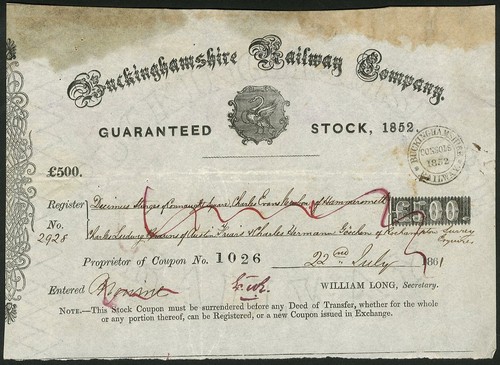 Buckinghamshire Railway Company.
GUARANTEED STOCK, 1852.
BUCKINGHAMSHIRE RAILWAY
CONSOLS
1852
£500.
Register Decimus Sturges of Connaught Square, Charles Evans of Hammersmith
£500
No 2928 Charles Ludwig of Austin Friars & Charles Hermann Göschen of Roehampton Surrey Esquire.
Proprietor of Coupon No 1026 22nd July 1861
Entered WILLIAM LONG, Secretary.
NOTE.—This Stock Coupon must be surrendered before any Deed of Transfer, whether for the whole
or any portion thereof, can be Registered, or a new Coupon issued in Exchange.